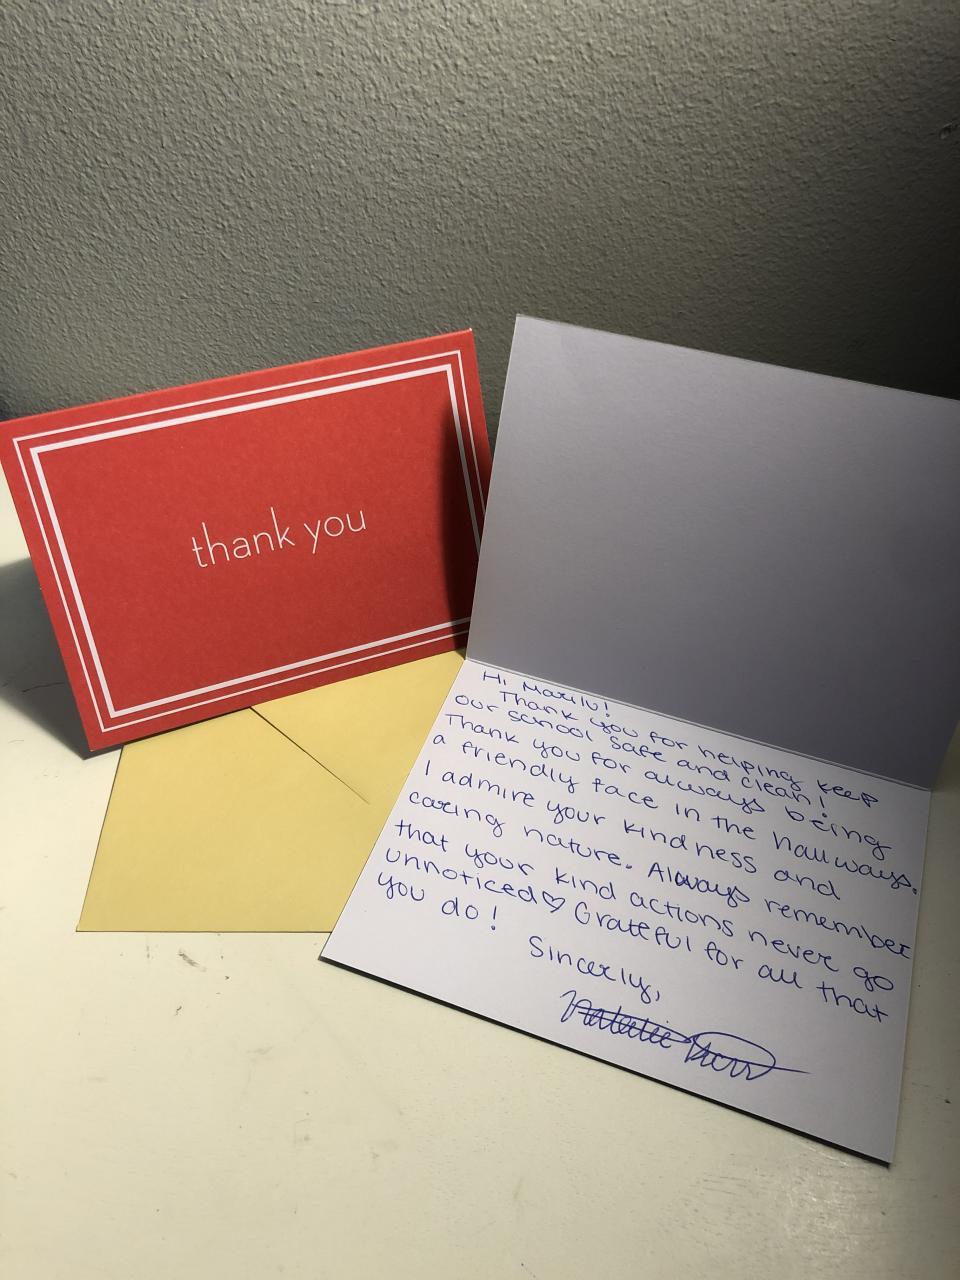 thank you
Hi Marilu!
Thank you for helping keep
our school safe and clean!
Thank you for always being
a friendly face in the hallways.
I admire your kindness and
caring nature. Always remember
that your kind actions never go
unnoticed♡ Grateful for all that
you do!
Sincerly,
Natalie